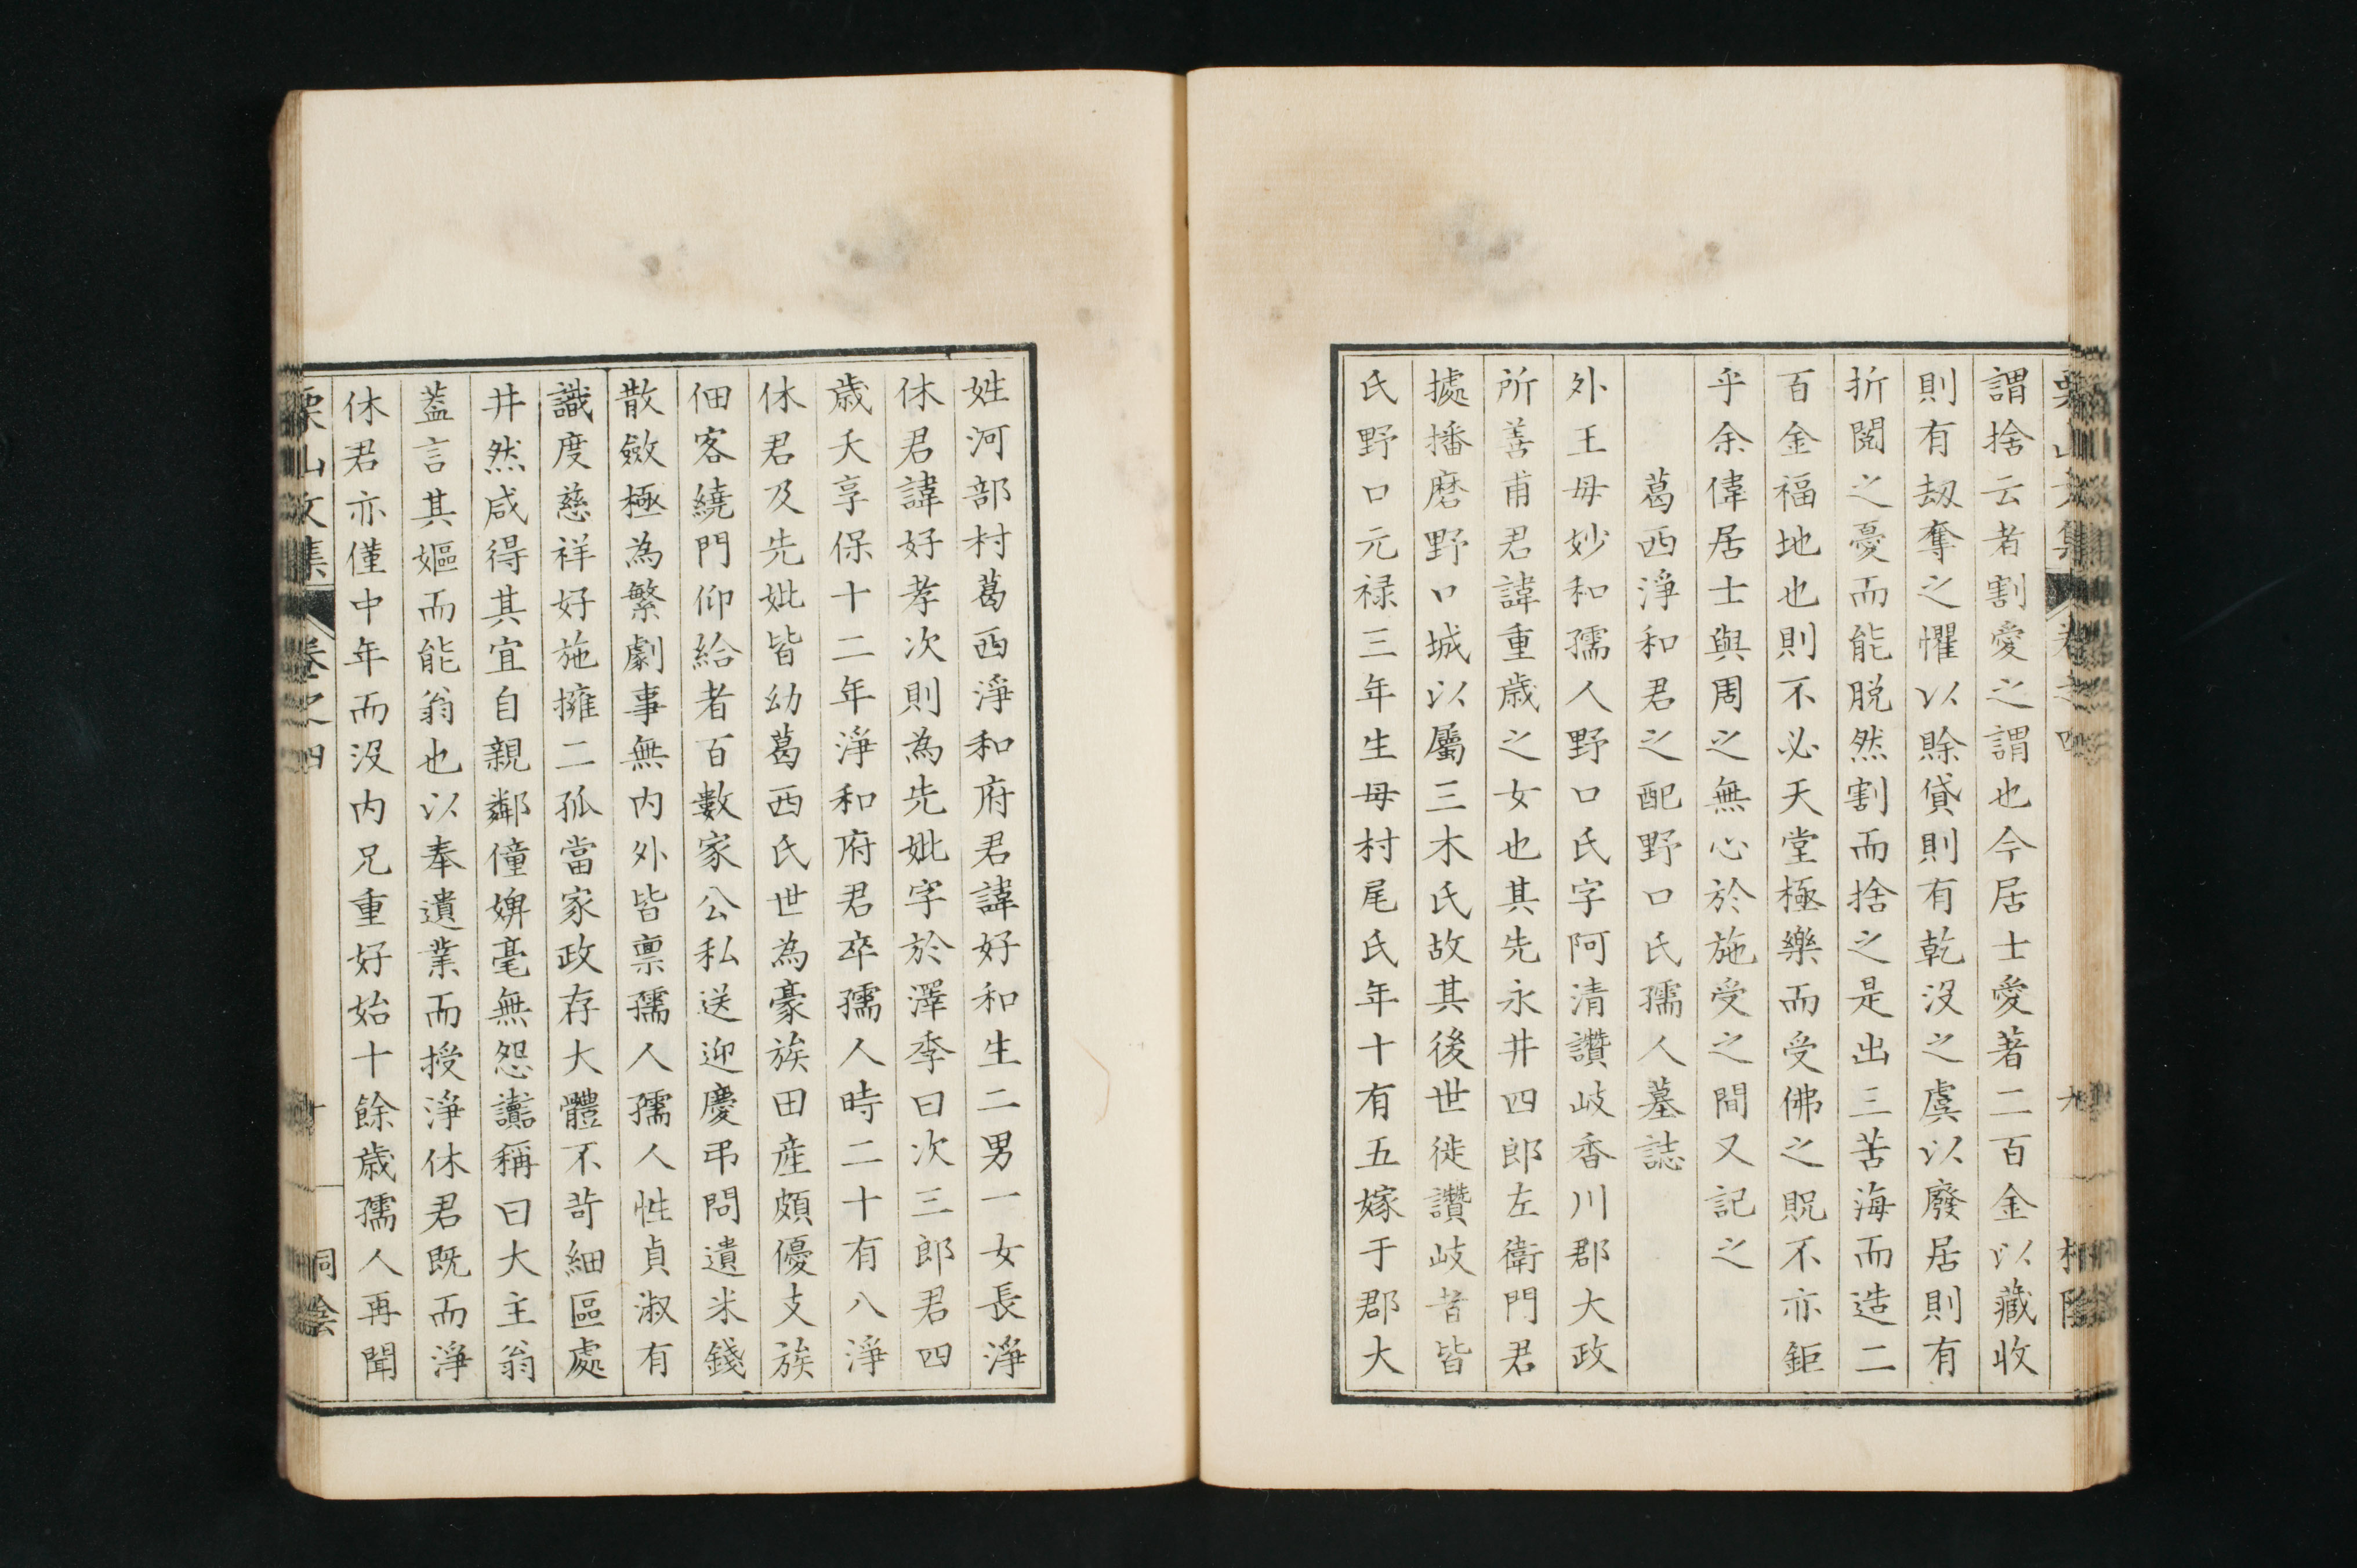 栗山文集
卷之四
九
謂捨云者割愛之謂也今居士愛著二百金以藏收
則有刼奪之懼以賒貸則有乾沒之虞以廢居則有
折閱之憂而能脱然割而捨之是出三苦海而造二
百金福地也則不必天堂極樂而受佛之貺不亦鉅
乎余偉居士與周之無心於施受之間又記之
葛西淨和君之配野口氏孺人墓誌
外王母妙和孺人野口氏字阿清讚岐香川郡大政
所善甫君諱重歳之女也其先永井四郎左衛門君
據播磨野口城以屬三木氏故其後世徙讚岐者皆
氏野口元禄三年生母村尾氏年十有五嫁于郡大
姓河部村葛西淨和府君諱好和生二男一女長淨
休君諱好孝次則為先妣字於澤季曰次三郎君四
歳夭享保十二年淨和府君卒孺人時二十有八淨
休君及先妣皆幼葛西氏世為豪族田産頗優支族
佃客繞門仰給者百數家公私送迎慶弔問遺米錢
散斂極為繁劇事無内外皆禀孺人孺人性貞淑有
識度慈祥好施擁二孤當家政存大體不苛細區處
井然咸得其宜自親鄰僮婢毫無怨讟稱曰大主翁
蓋言其嫗而能翁也以奉遺業而授淨休君既而淨
休君亦僅中年而沒内兄重好始十餘歳孺人再聞
栗山文集
卷之四
十